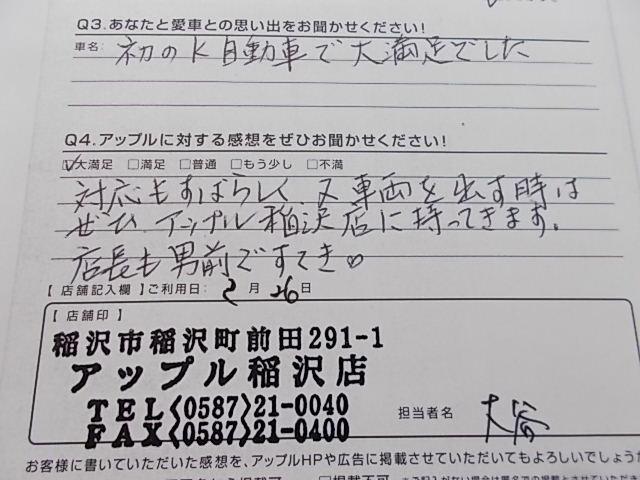 Q3.あなたと愛車との思い出をお聞かせください!
車名: 初のK自動車で大満足でした
Q4.アップルに対する感想をぜひお聞かせください!
☑大満足 □満足 □普通 □もう少し □不満
対応もすばらしく又車両を出す時は
ぜひアップル稲沢店に持ってきます.
店長も男前ですてき♡
【 店舗記入欄 】ご利用日: 2 月 26 日
【 店舗印 】
稲沢市稲沢町前田291-1
アップル稲沢店
TEL〈0587〉21-0040
FAX〈0587〉21-0400
担当者名 大谷
お客様に書いていただいた感想を、アップルHPや広告に掲載させていただいてもよろしいでしょうか